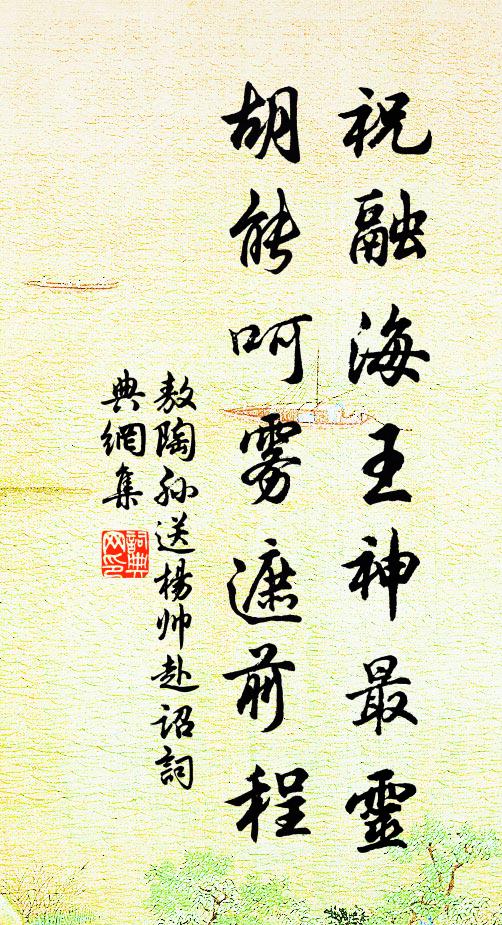 祝融海王神最靈
胡能呵雾遮前程
敖陶孙送楊帅赴詔詞
典網集
詞典网印